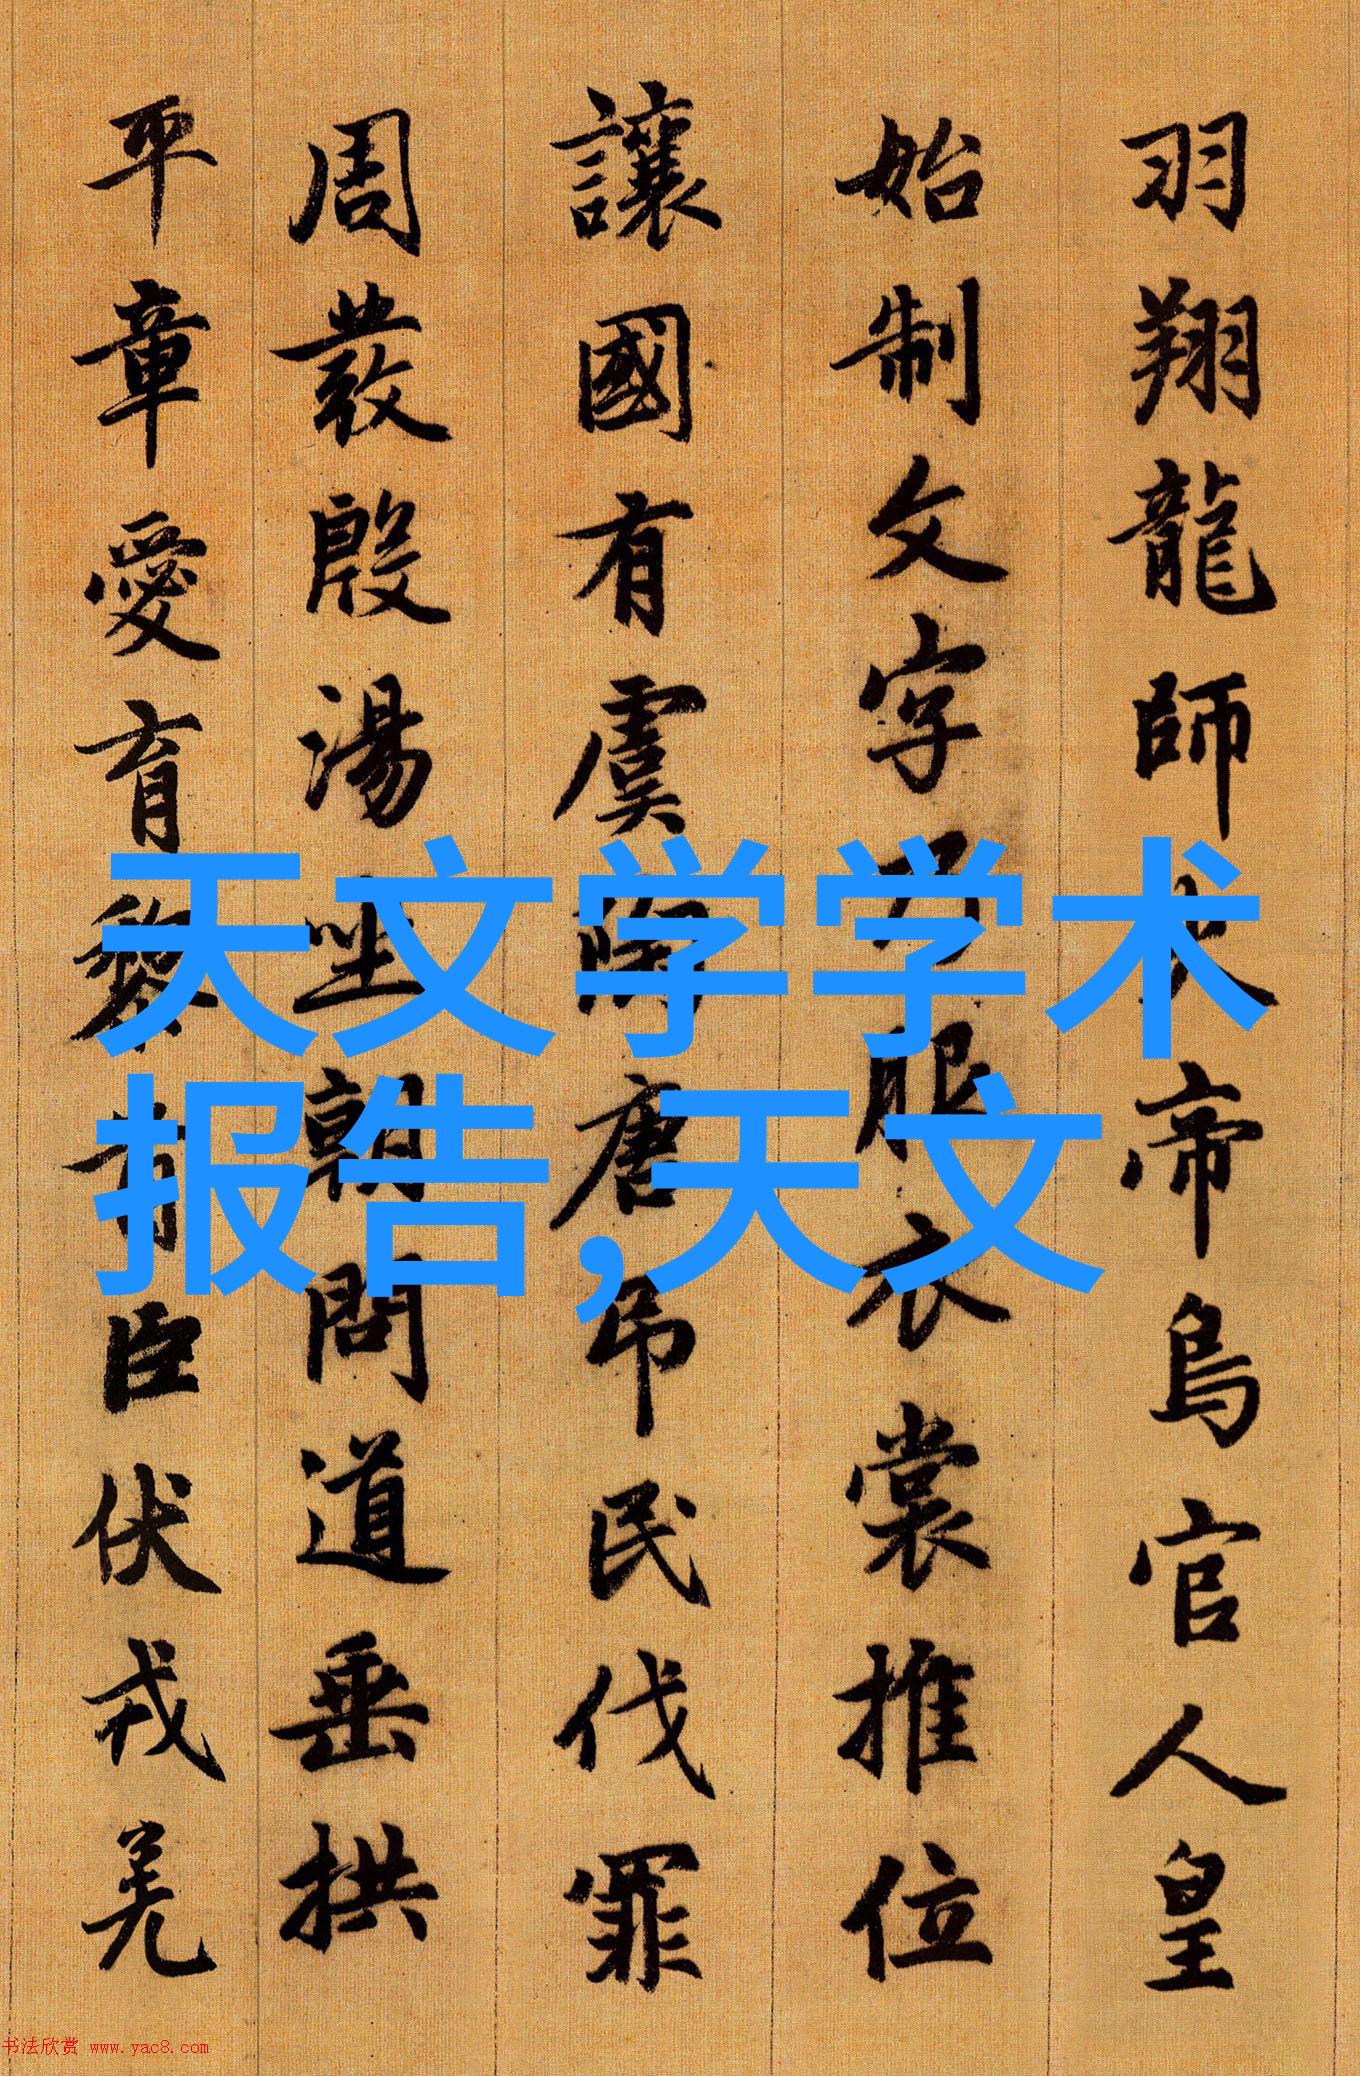 羽翔龍師火帝鳥官人皇
始制文字乃服衣裳推位
讓國有虞陶唐吊民伐罪
周發殷湯坐朝問道垂拱
平章愛育黎首臣伏戎羌
天文学学术
报告,天文
书法欣赏 www.yac8.com